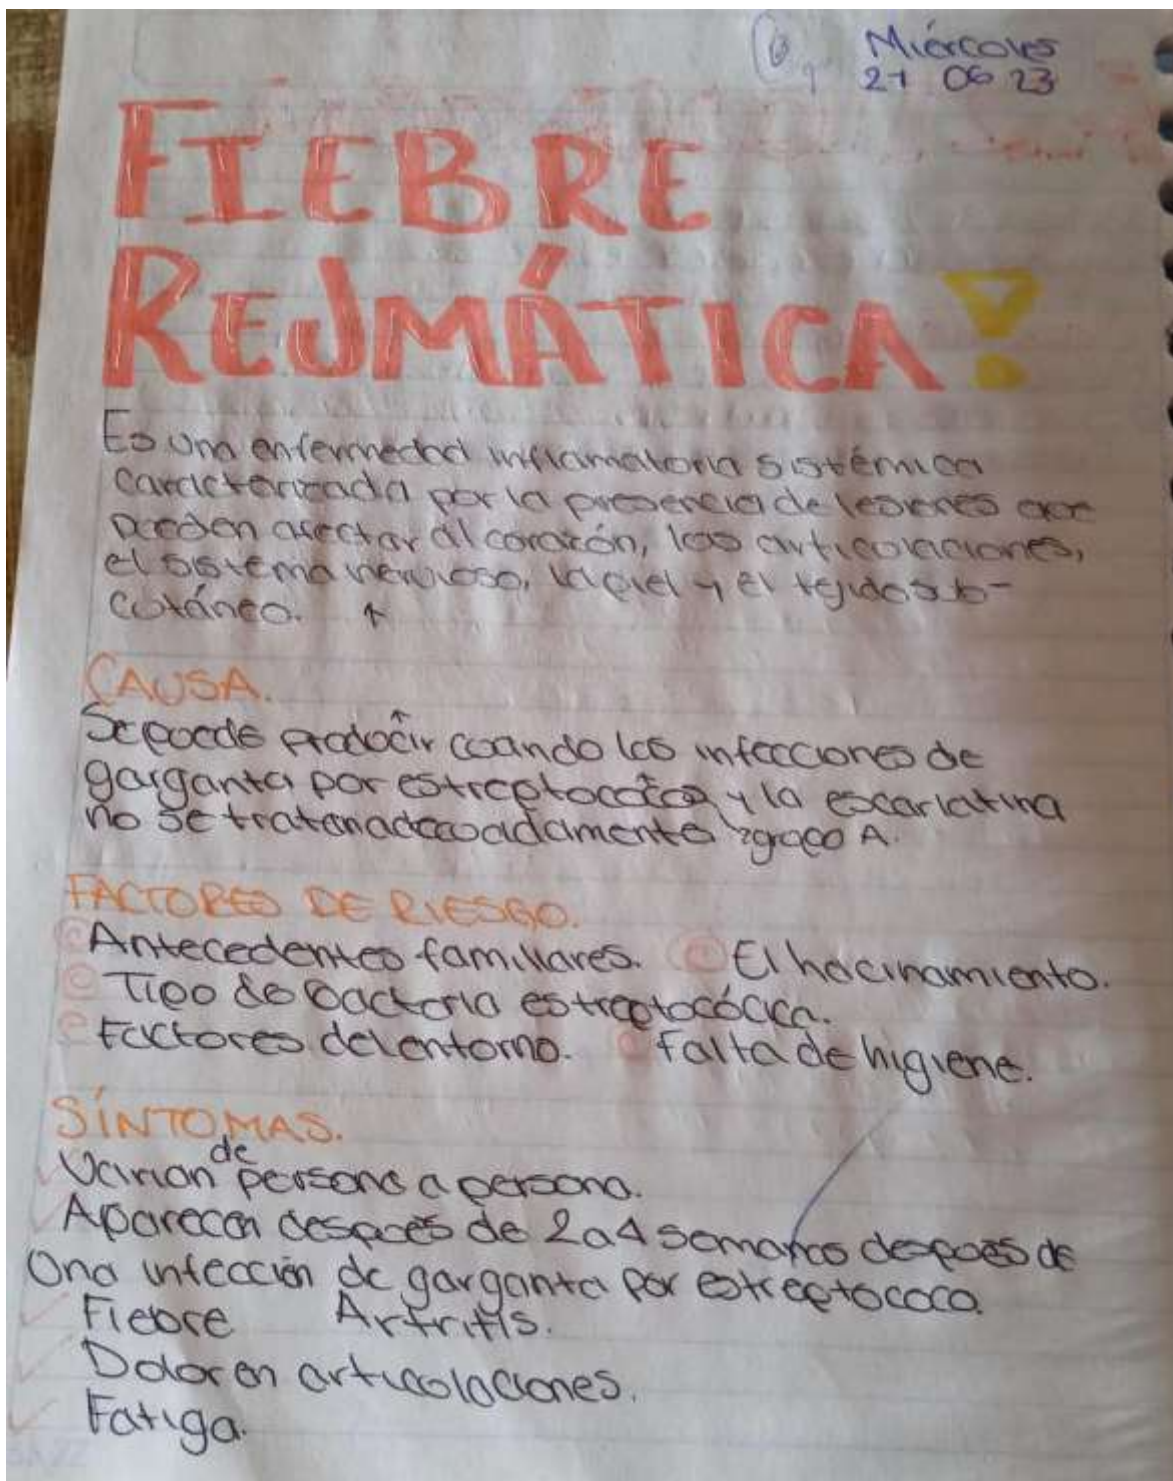 Miércoles
21 06 23
FIEBRE
REUMÁTICA!
Es una enfermedad inflamatoria sistémica
caracterizada por la presencia de lesiones que
pueden afectar al corazón, las articulaciones,
el sistema nervioso, la piel y el tejido sub-
cutáneo.
CAUSA.
Se puede producir cuando las infecciones de
garganta por estreptococo y la escarlatina
no se tratan adecuadamente grupo A.
FACTORES DE RIESGO.
Antecedentes familiares. El hacinamiento.
Tipo de bacteria estreptocócica.
Factores del entorno. Falta de higiene.
SÍNTOMAS.
Varían de persona a persona.
Aparecen después de 2 a 4 semanas después de
Una infección de garganta por estreptococo.
Fiebre Artritis.
Dolor en articulaciones.
Fatiga.